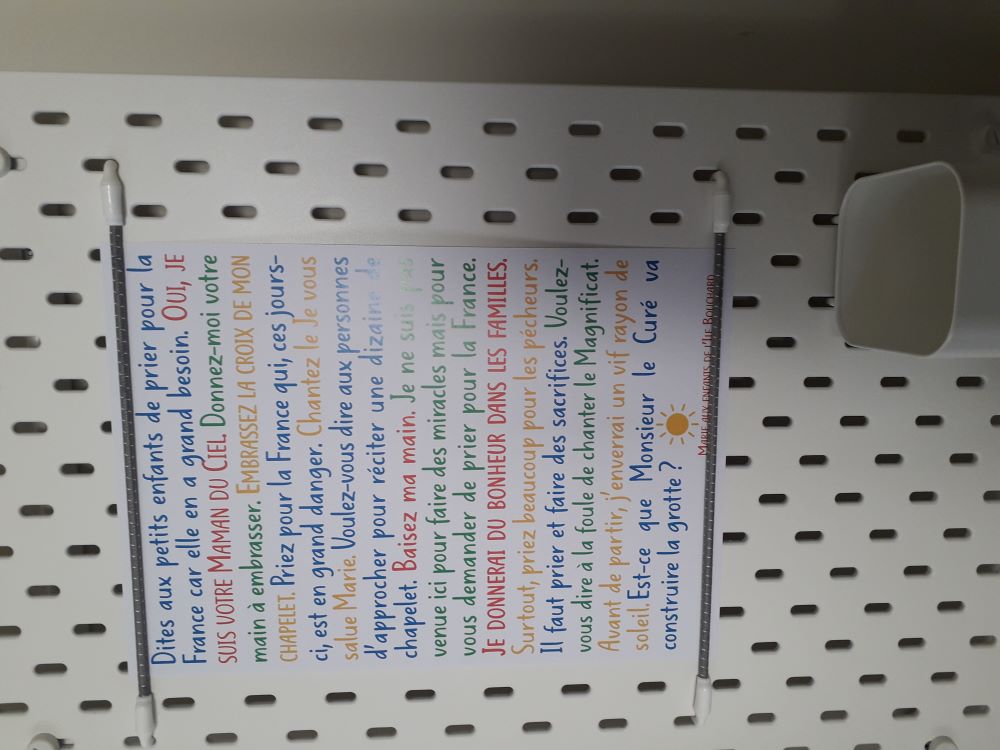 Dites aux petits enfants de prier pour la
France car elle en a grand besoin. OUI, JE
SUIS VOTRE MAMAN DU CIEL. Donnez-moi votre
main à embrasser. EMBRASSEZ LA CROIX DE MON
CHAPELET. Priez pour la France qui, ces jours-
ci, est en grand danger. Chantez le Je vous
salue Marie. Voulez-vous dire aux personnes
d'approcher pour réciter une dizaine de
chapelet. Baisez ma main. Je ne suis pas
venue ici pour faire des miracles mais pour
vous demander de prier pour la France.
JE DONNERAI DU BONHEUR DANS LES FAMILLES.
Surtout, priez beaucoup pour les pécheurs.
Il faut prier et faire des sacrifices. Voulez-
vous dire à la foule de chanter le Magnificat.
Avant de partir, j'enverrai un vif rayon de
soleil. Est-ce que Monsieur le Curé va
construire la grotte ?
MARIE AUX ENFANTS DE L'ILE BOUCHARD